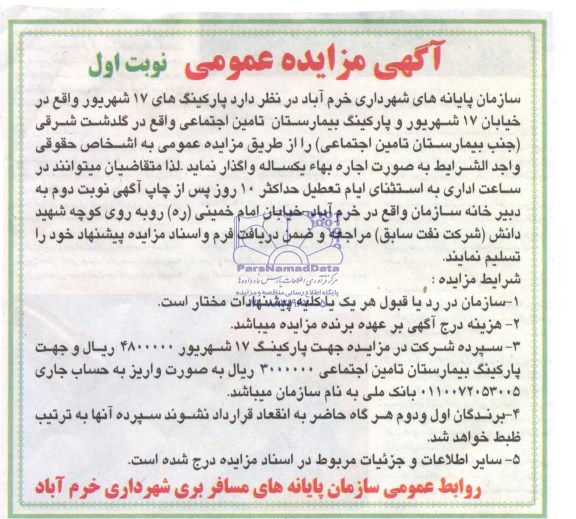 آگهی مزایده عمومی نوبت اول
سازمان پایانه های شهرداری خرم آباد در نظر دارد پارکینگ های ۱۷ شهریور واقع در
خیابان ۱۷ شهریور و پارکینگ بیمارستان تامین اجتماعی واقع در گلدشت شرقی
(جنب بیمارستان تامین اجتماعی) را از طریق مزایده عمومی به اشخاص حقوقی
واجد الشرایط به صورت اجاره بهاء یکساله واگذار نماید .لذا متقاضیان میتوانند در
ساعت اداری به استثنای ایام تعطیل حداکثر ۱۰ روز پس از چاپ آگهی نوبت دوم به
دبیر خانه سازمان واقع در خرم آباد- خیابان امام خمینی (ره) روبه روی کوچه شهید
دانش (شرکت نفت سابق) مراجعه و ضمن دریافت فرم واسناد مزایده پیشنهاد خود را
تسلیم نمایند.
ParsNamadData
شرایط مزایده :
۱-سازمان در رد یا قبول هر یک یا کلیه پیشنهادات مختار است.
۲- هزینه درج آگهی بر عهده برنده مزایده میباشد.
۳- سپرده شرکت در مزایده جهت پارکینگ ۱۷ شهریور ۴۸۰۰۰۰۰ ریال و جهت
پارکینگ بیمارستان تامین اجتماعی ۳۰۰۰۰۰۰ ریال به صورت واریز به حساب جاری
۰۱۱۰۰۷۲۰۵۳۰۰۵ بانک ملی به نام سازمان میباشد.
۴-برندگان اول ودوم هر گاه حاضر به انعقاد قرارداد نشوند سپرده آنها به ترتیب
ظبط خواهد شد.
۵- سایر اطلاعات و جزئیات مربوط در اسناد مزایده درج شده است.
روابط عمومی سازمان پایانه های مسافر بری شهرداری خرم آباد